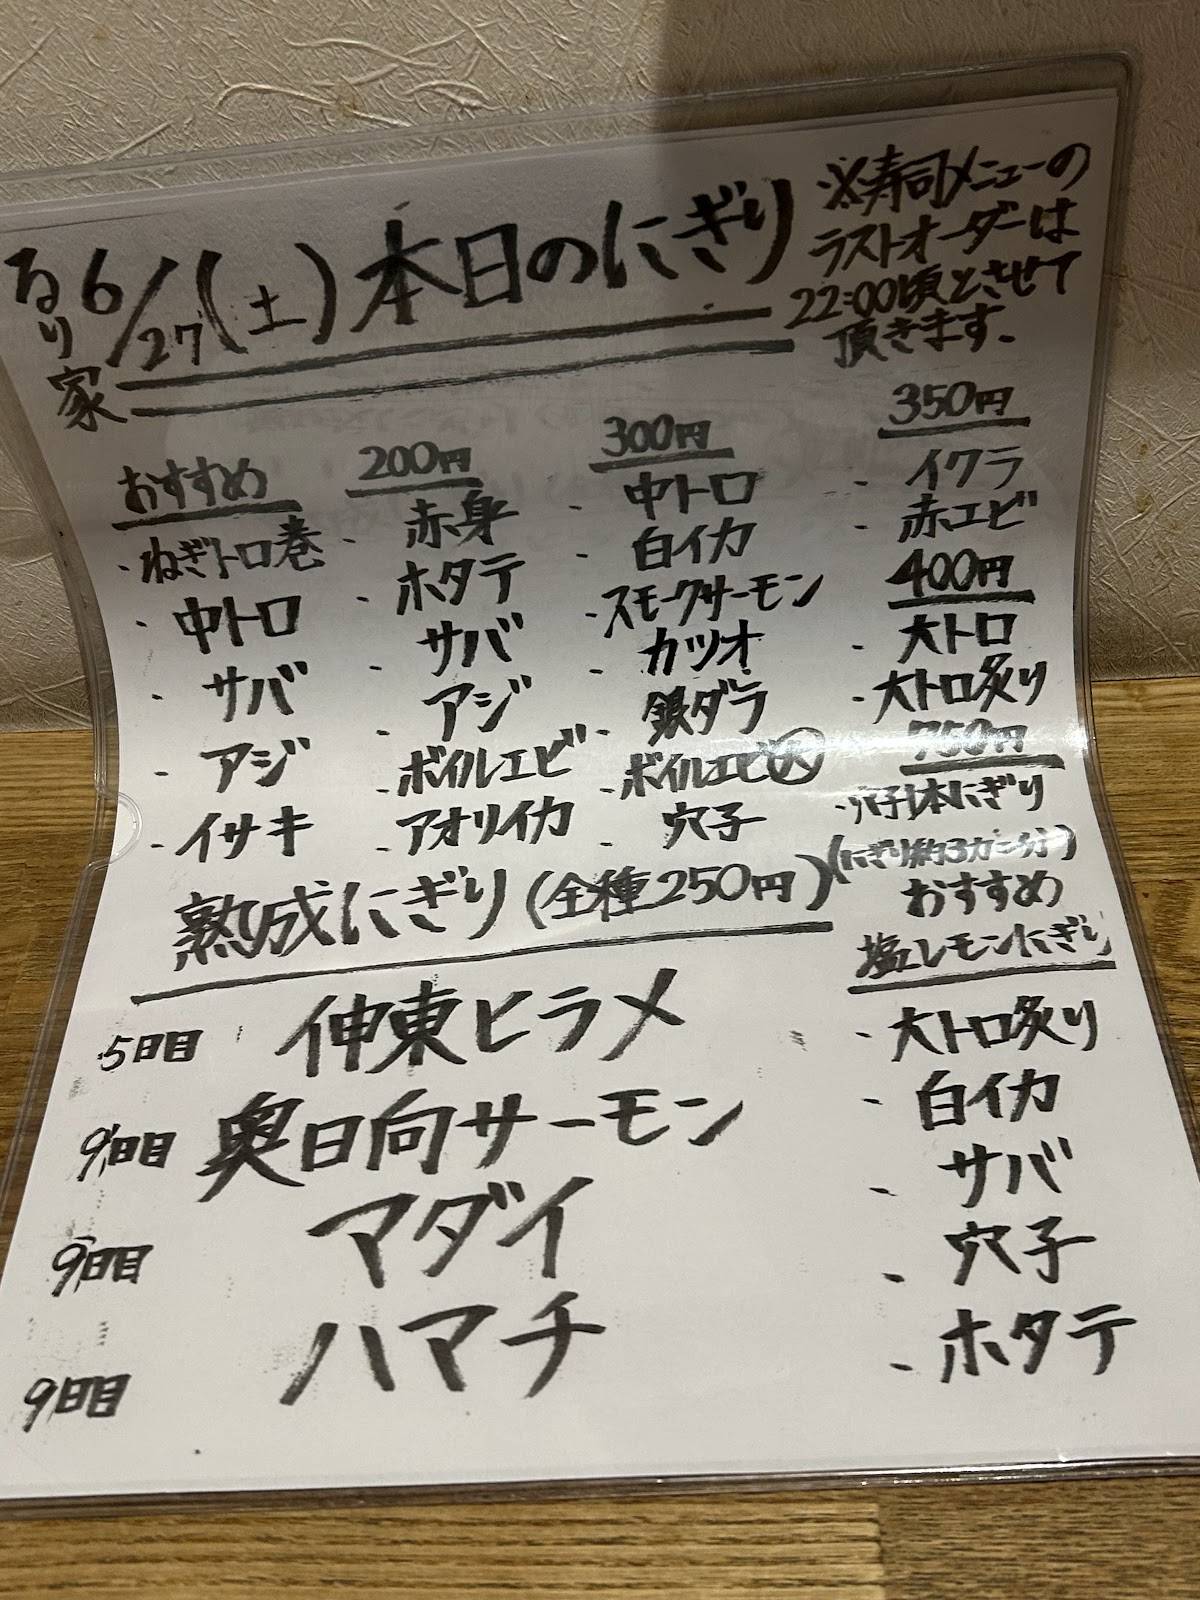 るり家
6/27(土)本日のにぎり
※寿司メニューの
ラストオーダーは
22:00頃とさせて
頂きます。
おすすめ
・ねぎトロ巻
・中トロ
・サバ
・アジ
・イサキ
200円
・赤身
・ホタテ
・サバ
・アジ
・ボイルエビ
・アオリイカ
300円
・中トロ
・白イカ
・スモークサーモン
・カツオ
・銀ダラ
・ボイルエビ大
・穴子
350円
・イクラ
・赤エビ
400円
・大トロ
・大トロ炙り
750円
・穴子1本にぎり
(にぎり約3カン分)
熟成にぎり(全種250円)
5日目 伊東ヒラメ
9日目 奥日向サーモン
9日目 マダイ
9日目 ハマチ
おすすめ
塩レモンにぎり
・大トロ炙り
・白イカ
・サバ
・穴子
・ホタテ